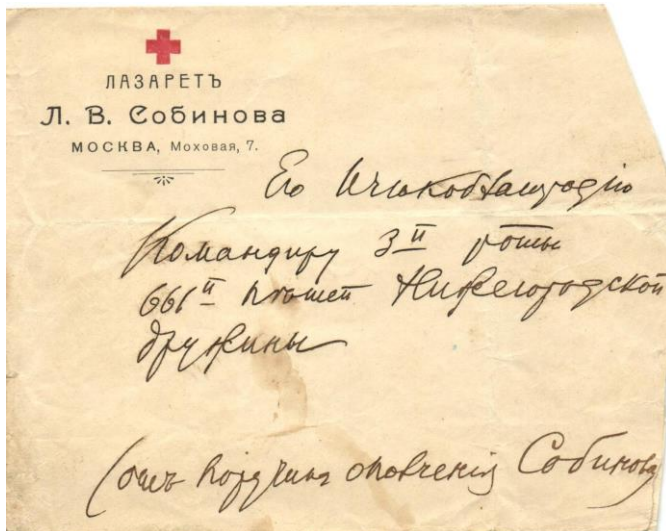 ЛАЗАРЕТЪ
Л. В. Собинова
МОСКВА, Моховая, 7.
Его Высокоблагородію
Командиру 3й роты
661й пѣшей Нижегородской
дружины
(отъ поручика ополченія Собинова